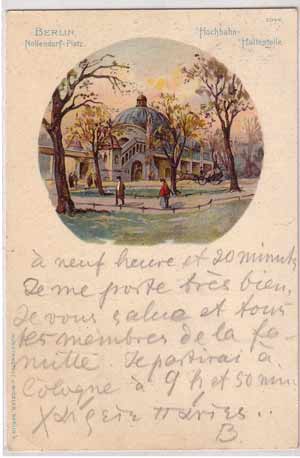 BERLIN,
Nollendorf-Platz.
Hochbahn-
Haltestelle.
à neuf heure et 20 minuts
Je me porte très bien.
Je vous salue et tous
les membres de la fa-
mille. Je partirai à
Cologne à 9 h et 50 min.
B.